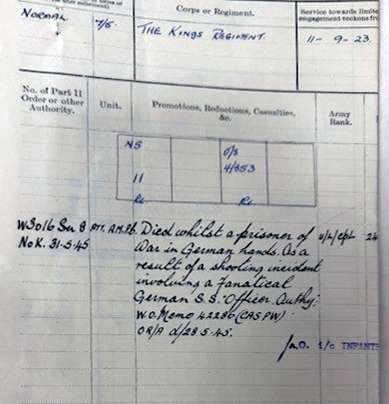 Corps or Regiment.
Service towards limited
engagement reckons from
NORMAL
7/5
THE KINGS REGIMENT.
11- 9-23.
No. of Part II
Order or other
Authority.
Unit.
Promotions, Reductions, Casualties,
&c.
Army
Rank.
NS
O/S
4/353
11
W3016 Ser 8
NoK. 31-5-45
Died whilst a prisoner of
War in German hands. As a
result of a shooting incident
involving a Fanatical
German S.S. Officer. Authy:
W.O. Memo 42280 (CAS PW)
28.5.45.
i/c INFANT